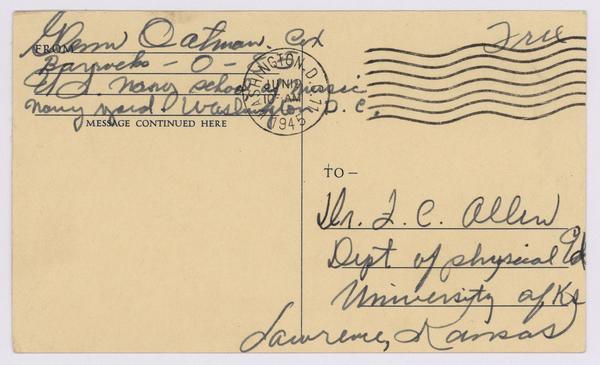 Glenn Oatman. Cox
FROM
Barracks - O -
U.S. Navy School of Music
Navy yard. Washington D.C.
MESSAGE CONTINUED HERE
WASHINGTON, D.C.
JUN 12
10 - AM
1945
Free
TO-
Dr. F. C. Allen
Dept of physical Ed
University of Ks
Lawrence, Kansas